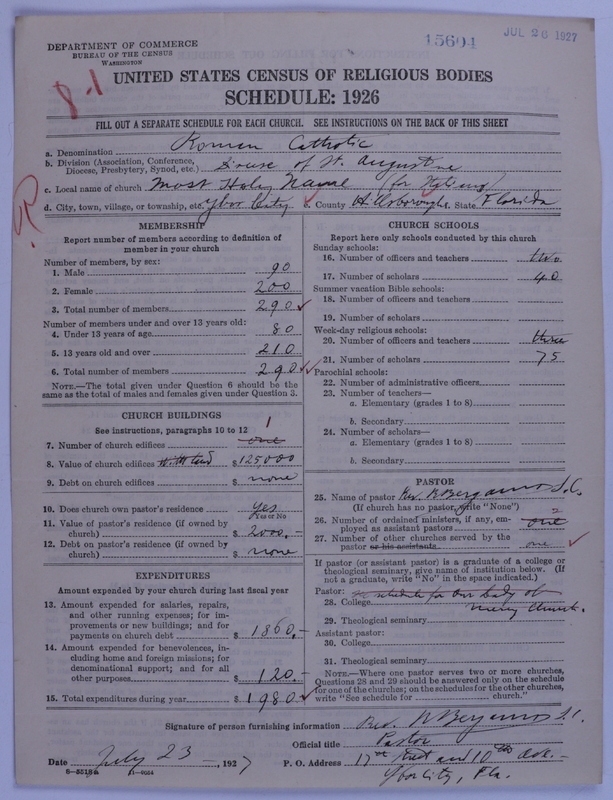 DEPARTMENT OF COMMERCE
BUREAU OF THE CENSUS
WASHINGTON
15604
JUL 26 1927
8-1
UNITED STATES CENSUS OF RELIGIOUS BODIES
SCHEDULE: 1926
FILL OUT A SEPARATE SCHEDULE FOR EACH CHURCH. SEE INSTRUCTIONS ON THE BACK OF THIS SHEET
a. Denomination Roman Catholic
b. Division (Association, Conference, Diocese, Presbytery, Synod, etc.) Diouse of St. Augustine
c. Local name of church Most Holy Name (for Italians)
d. City, town, village, or township, etc. Ybor City e. County Hillsborough f. State Florida
R
MEMBERSHIP
Report number of members according to definition of member in your church
Number of members, by sex:
1. Male 90
2. Female 200
3. Total number of members 290
Number of members under and over 13 years old:
4. Under 13 years of age 80
5. 13 years old and over 210
6. Total number of members 290
NOTE.—The total given under Question 6 should be the same as the total of males and females given under Question 3.
CHURCH BUILDINGS
See instructions, paragraphs 10 to 12
7. Number of church edifices one 1
8. Value of church edifices $ 125,000
9. Debt on church edifices $ none
10. Does church own pastor's residence yes
Yes or No
11. Value of pastor's residence (if owned by church) $ 2000.-
12. Debt on pastor's residence (if owned by church) $ none
EXPENDITURES
Amount expended by your church during last fiscal year
13. Amount expended for salaries, repairs, and other running expenses; for improvements or new buildings; and for payments on church debt $ 1860.-
14. Amount expended for benevolences, including home and foreign missions; for denominational support; and for all other purposes $ 120.-
15. Total expenditures during year $ 1980
CHURCH SCHOOLS
Report here only schools conducted by this church
Sunday schools:
16. Number of officers and teachers two
17. Number of scholars 40
Summer vacation Bible schools:
18. Number of officers and teachers
19. Number of scholars
Week-day religious schools:
20. Number of officers and teachers three
21. Number of scholars 75
Parochial schools:
22. Number of administrative officers
23. Number of teachers—
a. Elementary (grades 1 to 8)
b. Secondary
24. Number of scholars—
a. Elementary (grades 1 to 8)
b. Secondary
PASTOR
25. Name of pastor Rev.
(If church has no pastor, write "None")
26. Number of ordained ministers, if any, employed as assistant pastors one 2
27. Number of other churches served by the pastor or his assistants one
If pastor (or assistant pastor) is a graduate of a college or theological seminary, give name of institution below. (If not a graduate, write "No" in the space indicated.)
Pastor: schedule for Our Lady of
28. College Mercy Church.
29. Theological seminary
Assistant pastor:
30. College
31. Theological seminary
NOTE.—Where one pastor serves two or more churches, Questions 28 and 29 should be answered only on the schedule for one of the churches; on the schedules for the other churches, write "See schedule for ______ church."
Signature of person furnishing information Rev.
Official title Pastor
Date July 23 -, 1927 P. O. Address 17th and 10th Ave. -
Ybor City, Fla.
8-5518a 11-9054